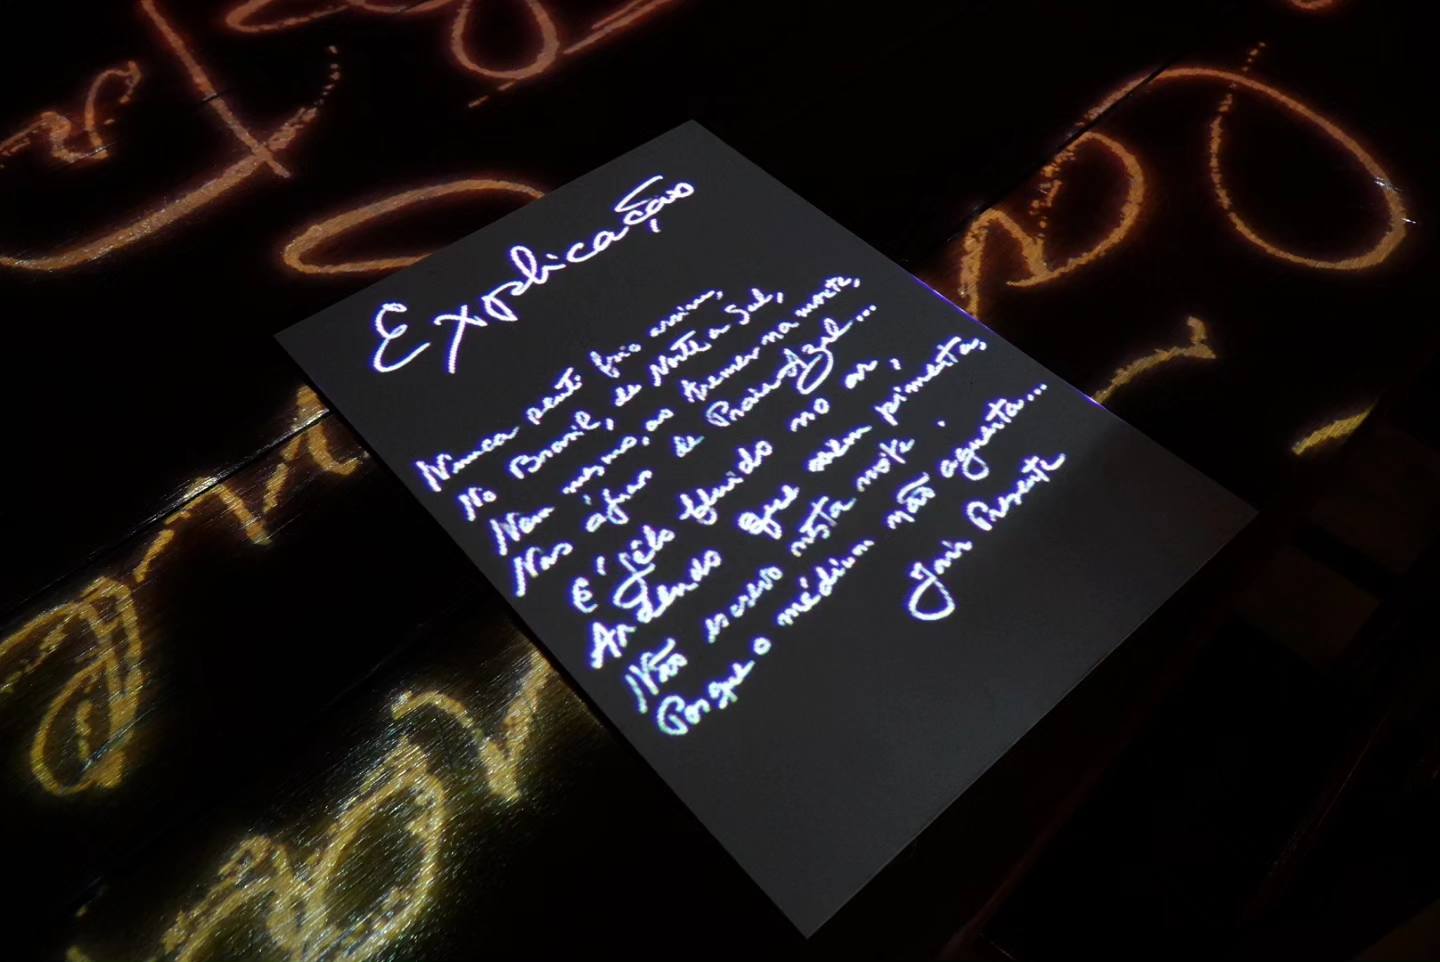 Explicação
Nunca senti frio assim,
No Brasil, de Norte a Sul,
Nem mesmo, ao tremer na morte,
Nas águas de Praia Azul...
É gêlo fluido no ar,
Ardendo que nem pimenta,
Não escrevo nesta noite
Porque o médium não aguenta...
Jair Presente